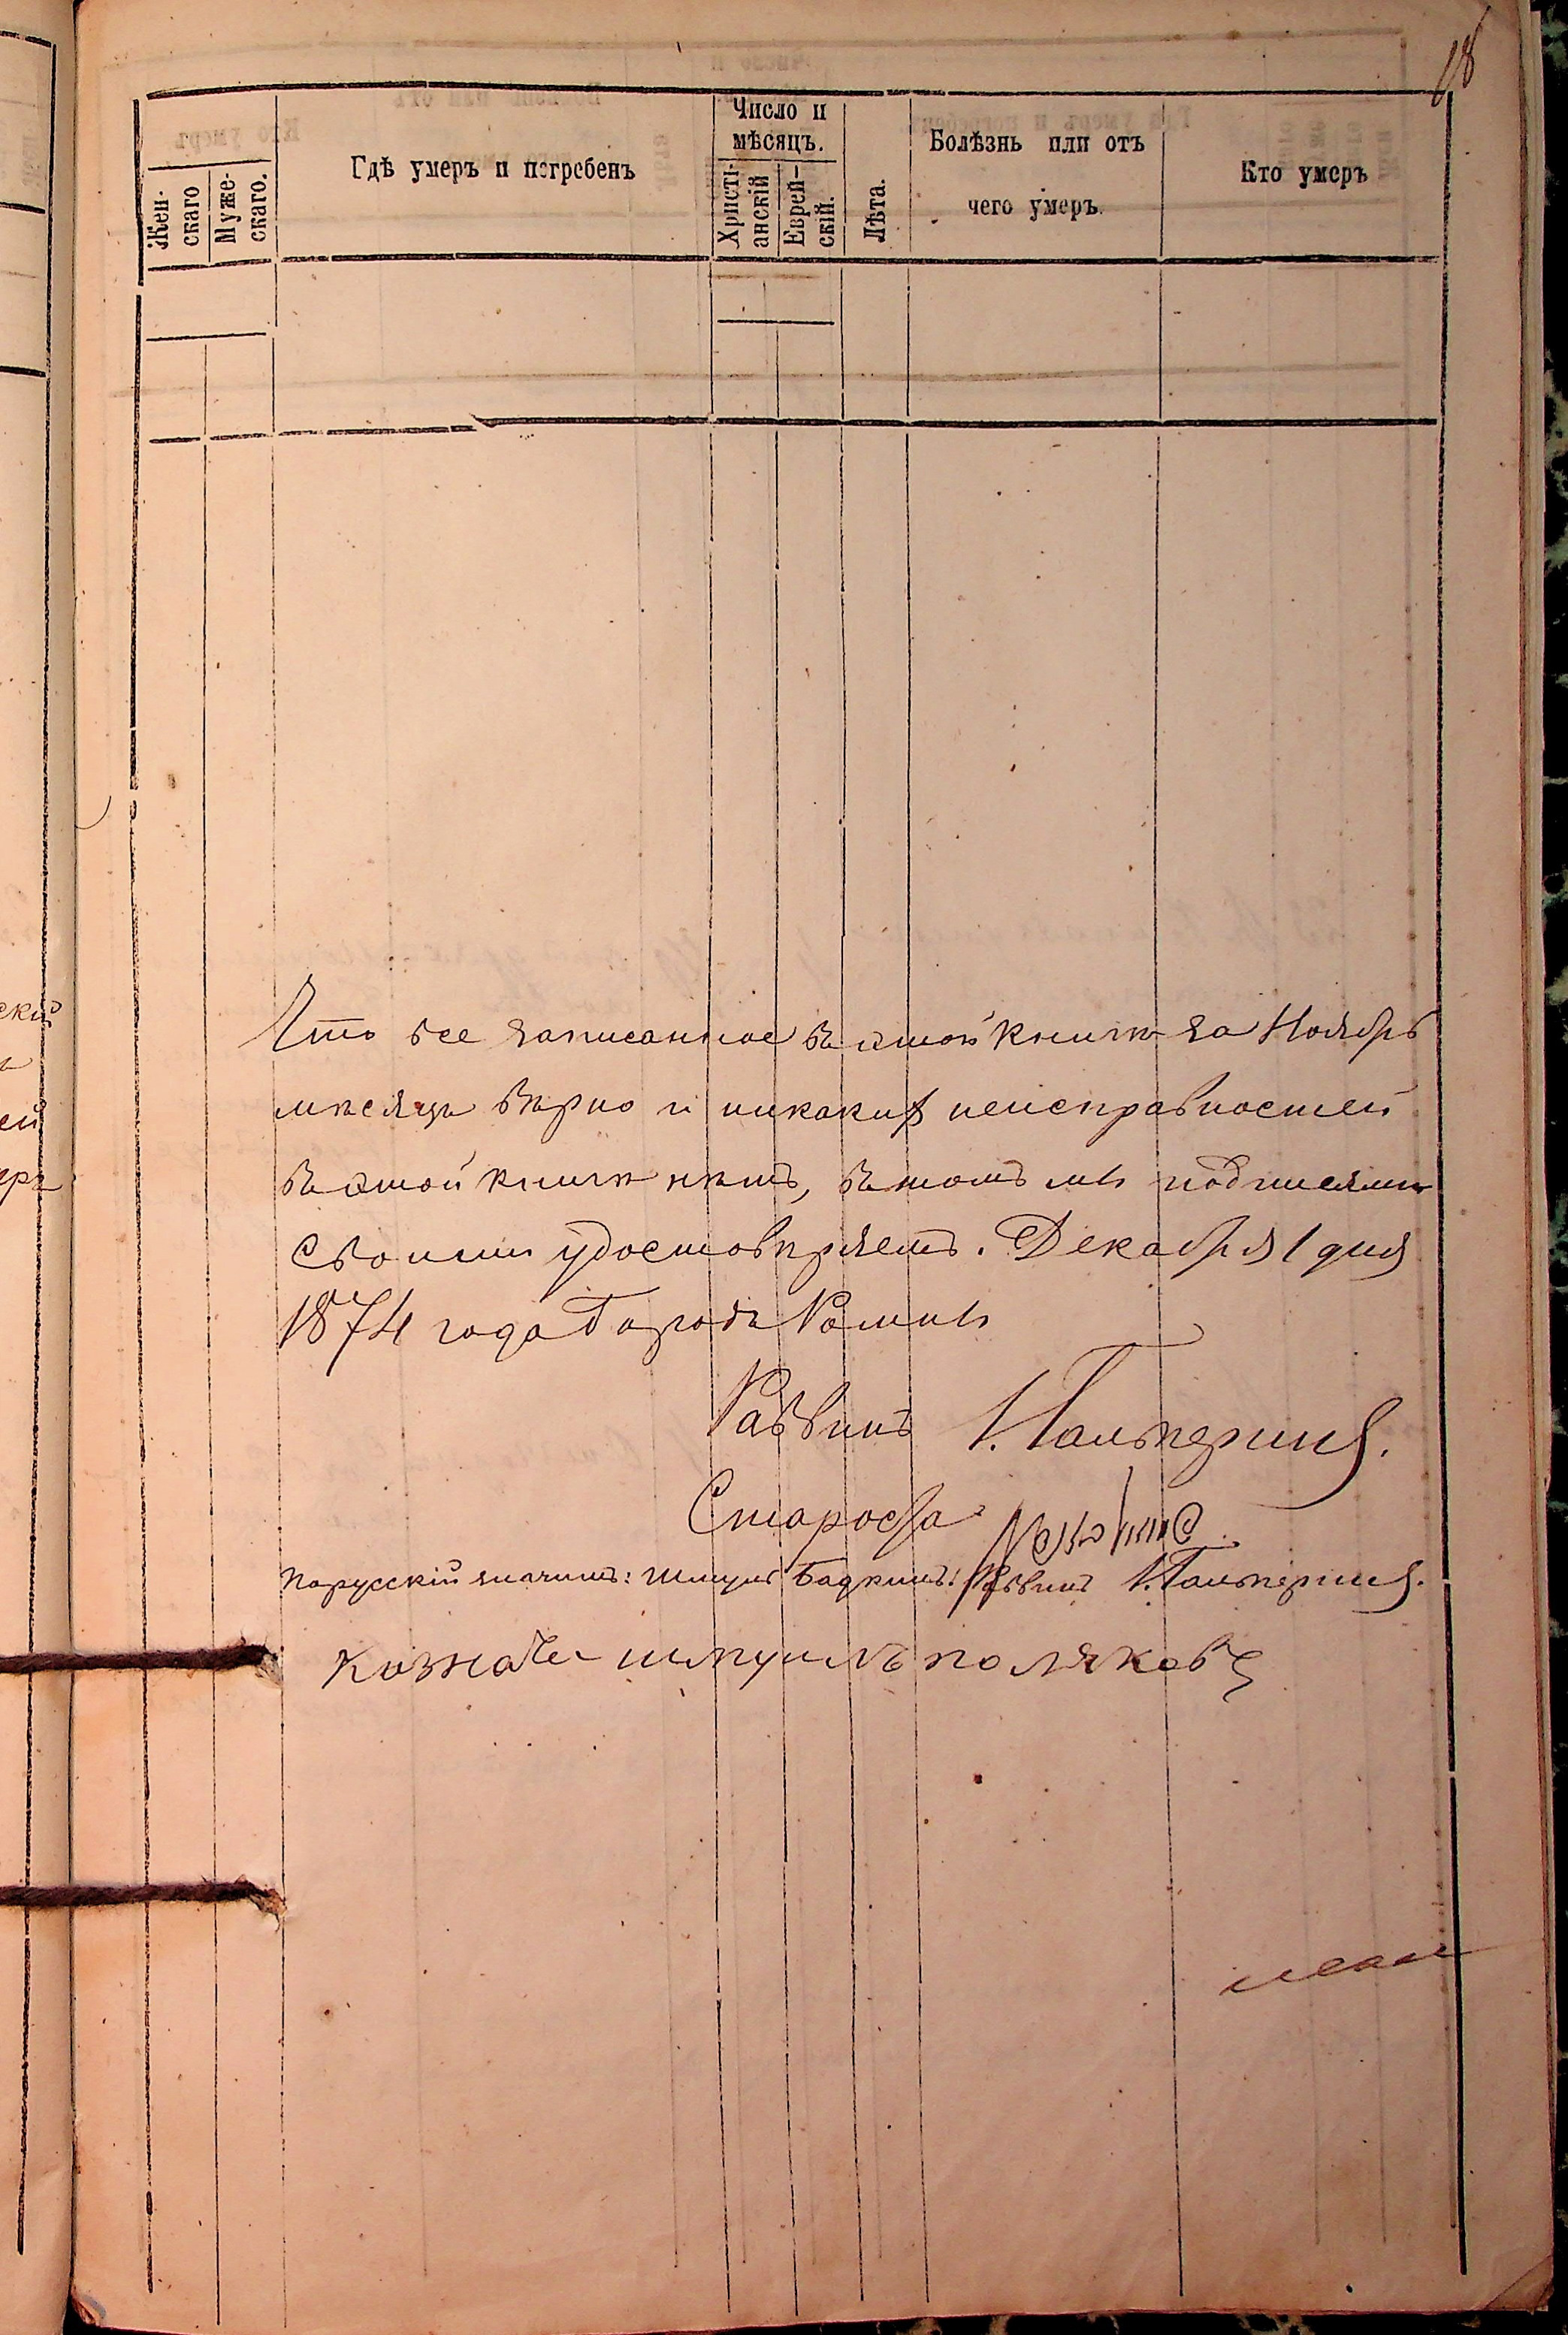 18
Жен-
скаго
Муже-
скаго.
Гдѣ умеръ и погребенъ
Число и
мѣсяцъ.
Христі-
анскій
Еврей-
скій.
Лѣта.
Болѣзнь или отъ
чего умеръ.
Кто умеръ
Что все записанное въ этой книгѣ за Ноябрь
мѣсяцъ вѣрно и никакихъ неисправностей
въ этой книгѣ нѣтъ, въ томъ мы подписями
своими удостовѣряемъ. Декабря 1 дня
1874 года Городъ Ромны
Раввинъ І. Гальперинъ.
Староста
по русскій значитъ: Шмуль Бадкинъ: Раввинъ І. Гальперинъ.
Казначе шмуилъ поляковъ